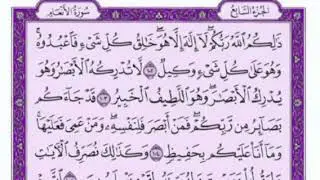 الجزء السابع
سورة الأنعام
ذَٰلِكُمُ ٱللَّهُ رَبُّكُمْ لَآ إِلَٰهَ إِلَّا هُوَ خَٰلِقُ كُلِّ شَىْءٍ فَٱعْبُدُوهُ
وَهُوَ عَلَىٰ كُلِّ شَىْءٍ وَكِيلٌ ١٠٢ لَّا تُدْرِكُهُ ٱلْأَبْصَٰرُ وَهُوَ
يُدْرِكُ ٱلْأَبْصَٰرَ وَهُوَ ٱللَّطِيفُ ٱلْخَبِيرُ ١٠٣ قَدْ جَآءَكُم
بَصَآئِرُ مِن رَّبِّكُمْ فَمَنْ أَبْصَرَ فَلِنَفْسِهِۦ وَمَنْ عَمِىَ فَعَلَيْهَا
وَمَآ أَنَا۠ عَلَيْكُم بِحَفِيظٍ ١٠٤ وَكَذَٰلِكَ نُصَرِّفُ ٱلْءَايَٰتِ